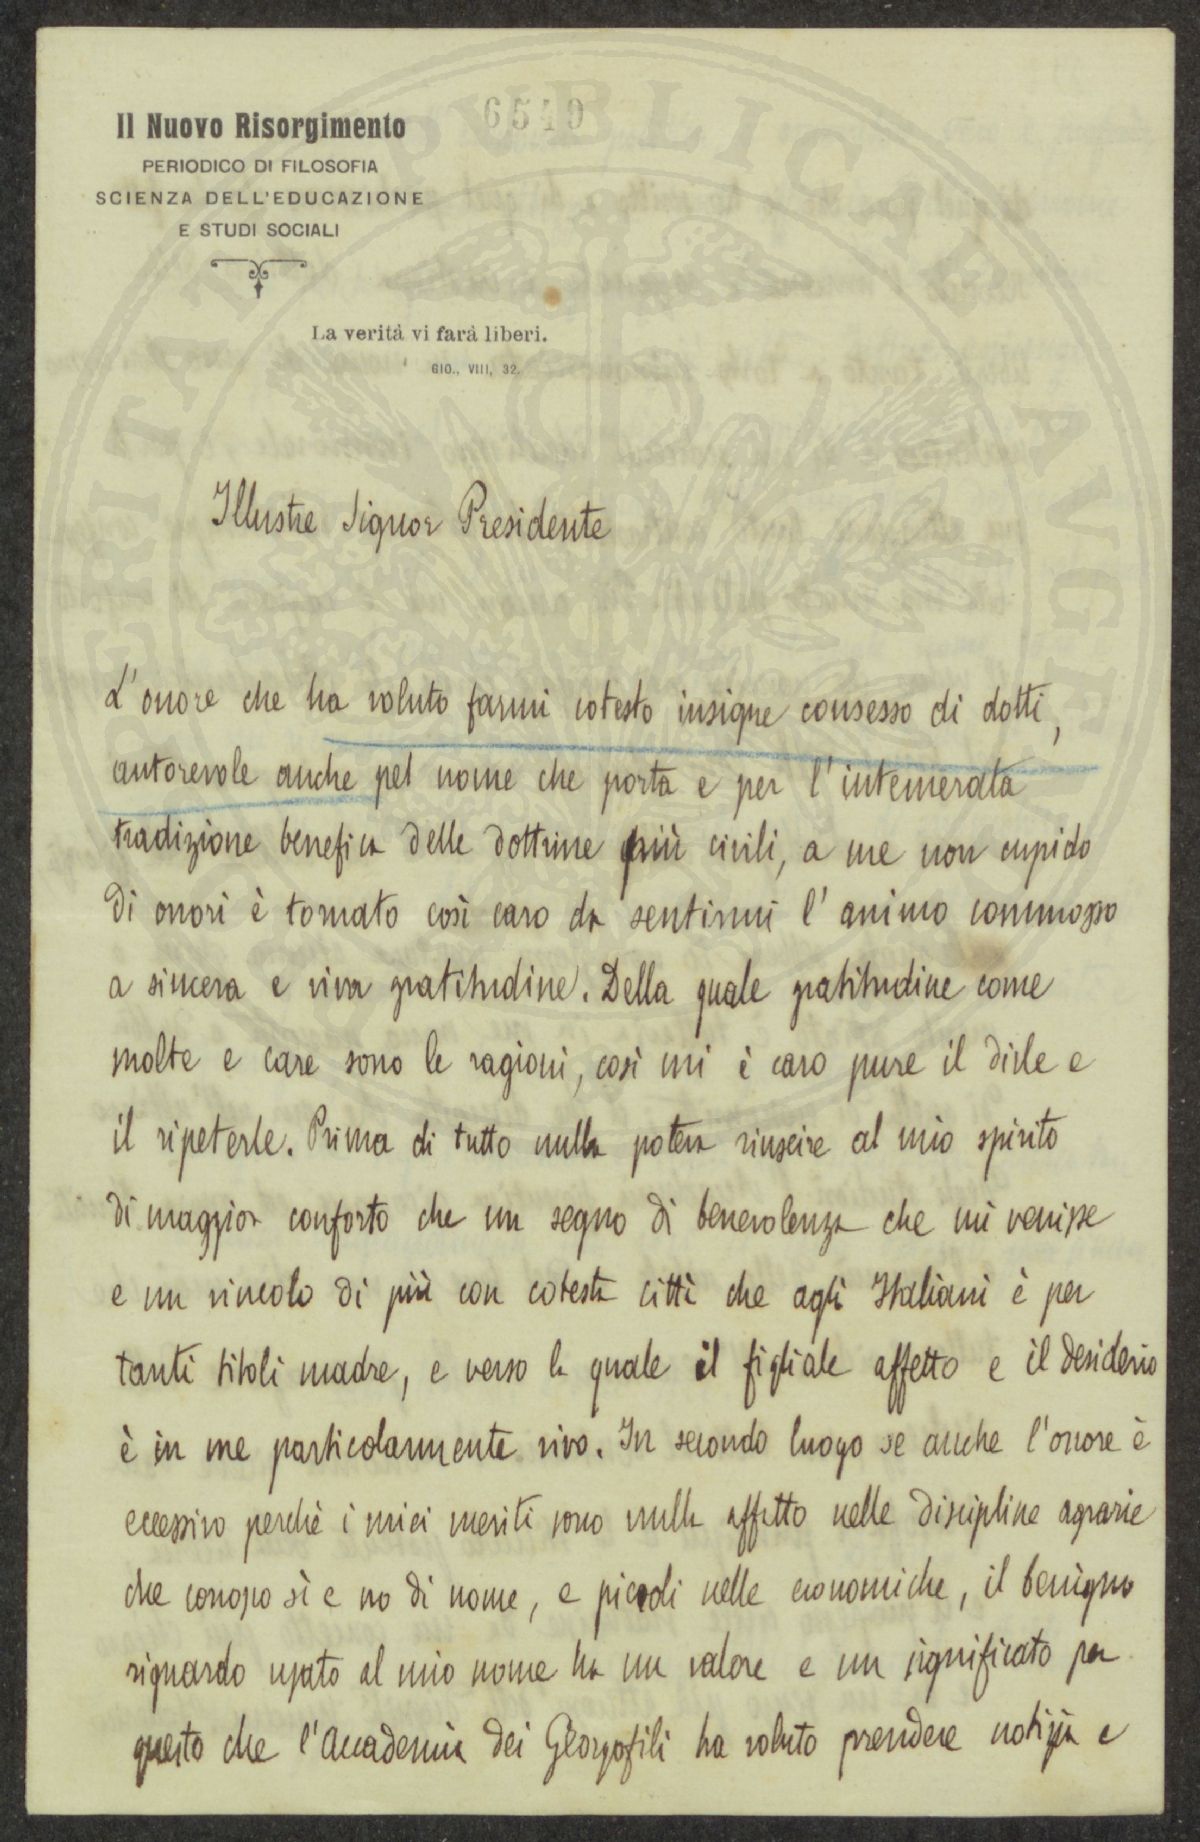 6540
Il Nuovo Risorgimento
PERIODICO DI FILOSOFIA
SCIENZA DELL'EDUCAZIONE
E STUDI SOCIALI
La verità vi farà liberi.
GIO., VIII, 32.
Illustre Signor Presidente
L'onore che ha voluto farmi cotesto insigne consesso di dotti,
autorevole anche pel nome che porta e per l'intemerata
tradizione benefica delle dottrine più civili, a me non cupido
di onori è tornato così caro da sentirmi l'animo commosso
a sincera e viva gratitudine. Della quale gratitudine come
molte e care sono le ragioni, così mi è caro pure il dirle e
il ripeterle. Prima di tutto nulla poteva riuscire al mio spirito
di maggior conforto che un segno di benevolenza che mi venisse
e un vincolo di più con cotesta città che agli Italiani è per
tanti titoli madre, e verso la quale il figliale affetto e il desiderio
è in me particolarmente vivo. In secondo luogo se anche l'onore è
eccessivo perchè i miei meriti sono nulla affatto nelle discipline agrarie
che conosco sì e no di nome, e piccoli nelle economiche, il benigno
riguardo usato al mio nome ha un valore e un significato per
questo che l'Accademia dei Georgofili ha voluto prendere notizia e